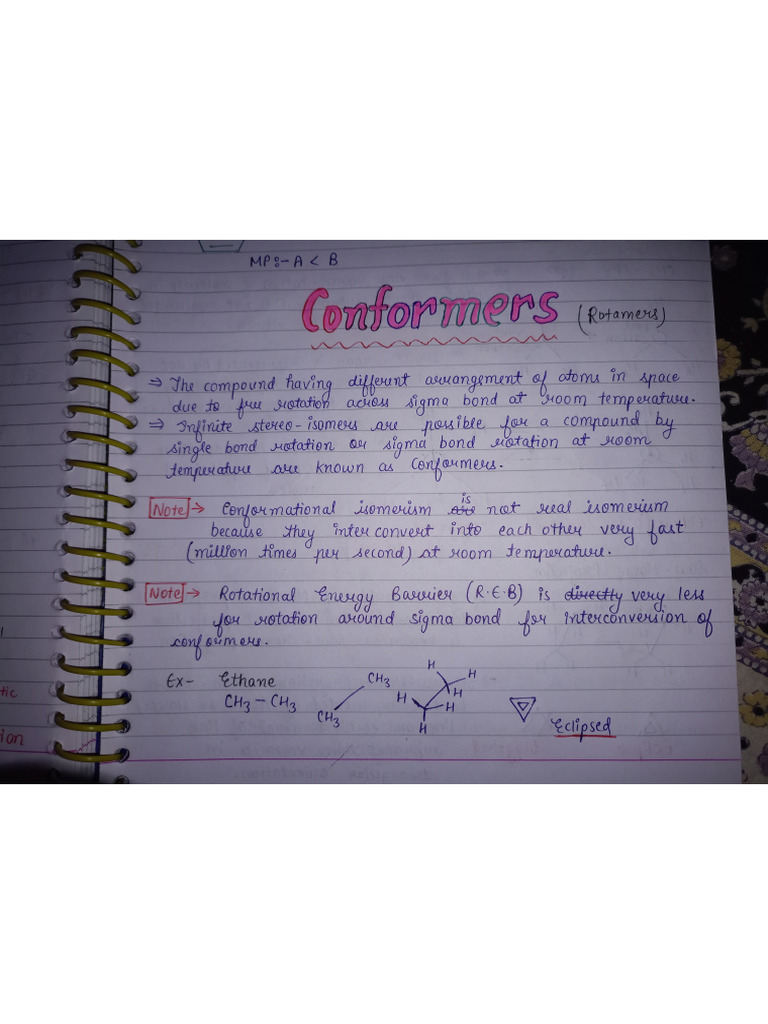 MP:- A < B
Conformers (Rotamers)
⇒ The compound having different arrangement of atoms in space
due to free rotation across sigma bond at room temperature.
⇒ Infinite stereo-isomers are possible for a compound by
single bond rotation or sigma bond rotation at room
temperature are known as Conformers.
Note → Conformational isomerism is are not real isomerism
because they interconvert into each other very fast
(million times per second) at room temperature.
Note → Rotational Energy Barrier (R.E.B) is directly very less
for rotation around sigma bond for interconversion of
conformers.
Ex- Ethane
CH3 - CH3
CH3
CH3
H
H
H
H
H
H
Eclipsed
tic
ion